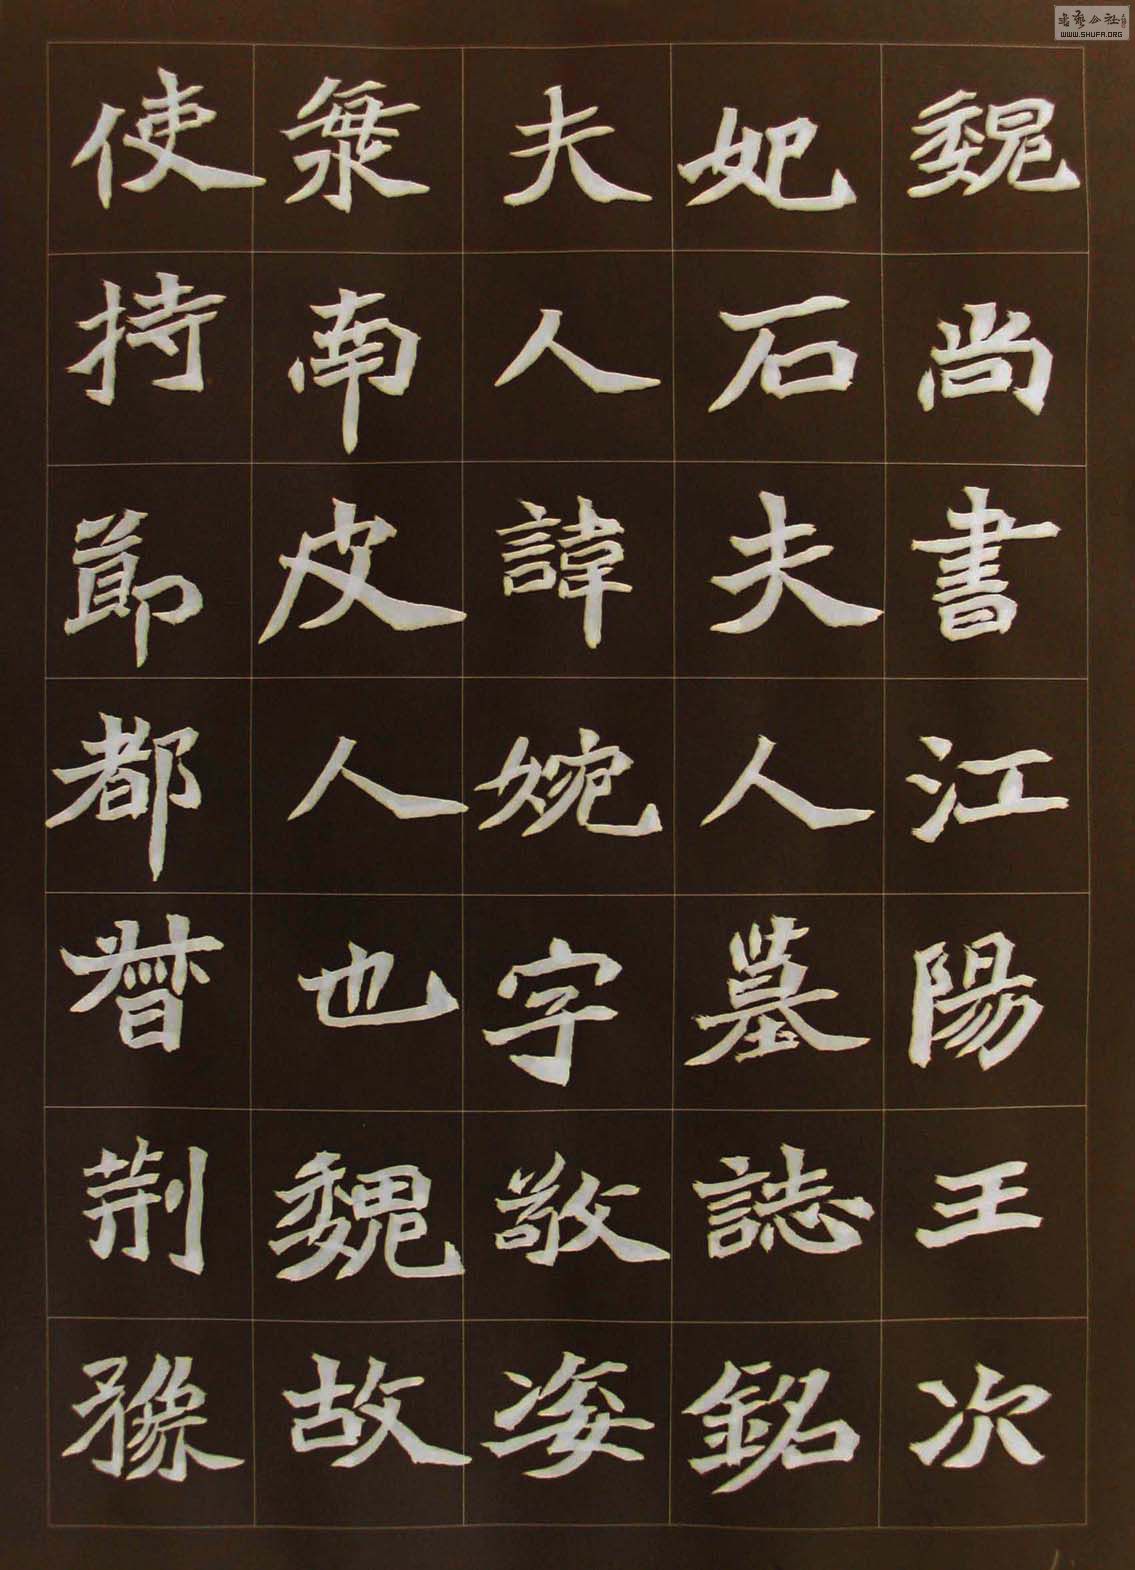 魏尚書江陽王次
妃石夫人墓誌銘
夫人諱婉字敬姿
海南皮人也魏故
使持節都督荊豫
书艺公社
WWW.SHUFA.ORG